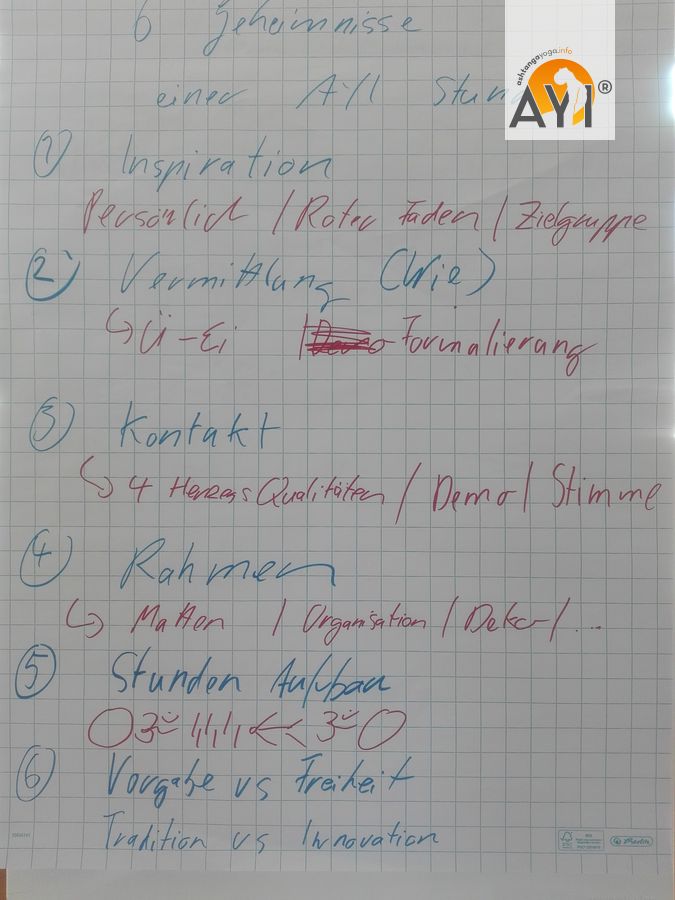 6 Geheimnisse
einer AYI Stun
ashtangayoga.info
AYI®
① Inspiration
Persönlich / Roter Faden / Zielgruppe
② Vermittlung (Wie)
↳ Ü-Ei / Formalierung
③ Kontakt
↳ 4 Herzens Qualitäten / Demo / Stimme
④ Rahmen
↳ Matten / Organisation / Deko / ...
⑤ Stunden Aufbau
⑥ Vorgabe vs Freiheit
Tradition vs Innovation